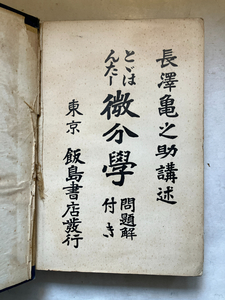 長澤亀之助講述
とどはんたー
微分學
問題解付き
東京 飯島書店發行